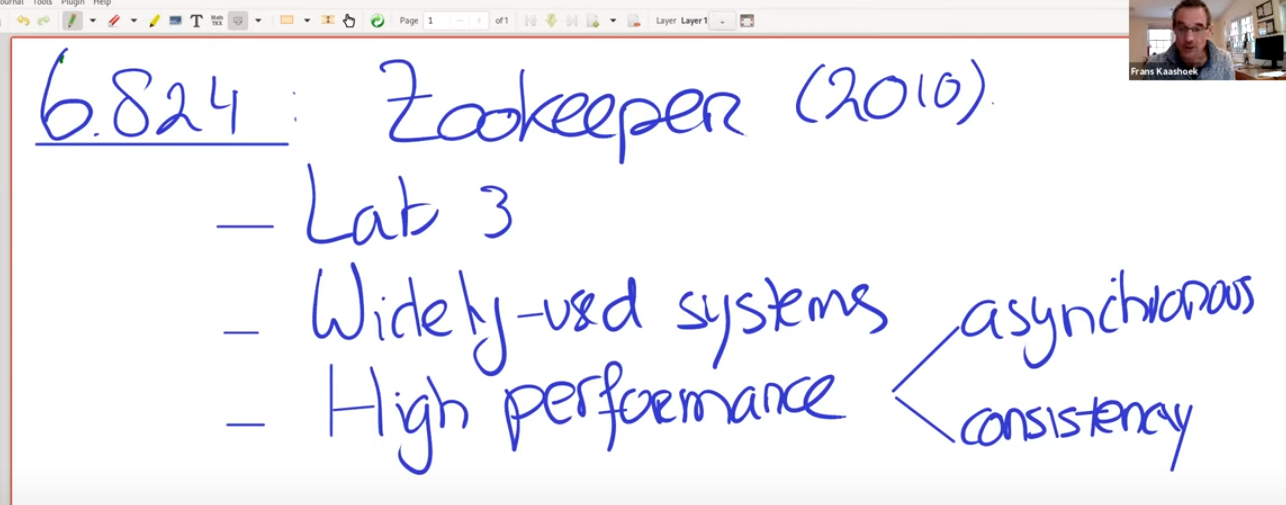 ournal Tools Plugin Help
T Math TEX Page 1 of 1 Layer Layer 1
Frans Kaashoek
6.824 : Zookeeper (2010)
— Lab 3
— Widely-used systems
— High performance
asynchronous
consistency